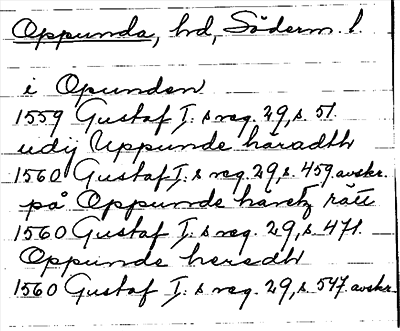 Oppunda, hd, Söderm. l.
i Opunden
1559 Gustaf I:s reg. 29, s. 51.
udij Uppunde häradth
1560 Gustaf I:s reg. 29, s. 459. avskr.
på Oppunde haretz rätt
1560 Gustaf I:s reg. 29, s. 471.
Oppunde heredth
1560 Gustaf I:s reg. 29, s. 547. avskr.